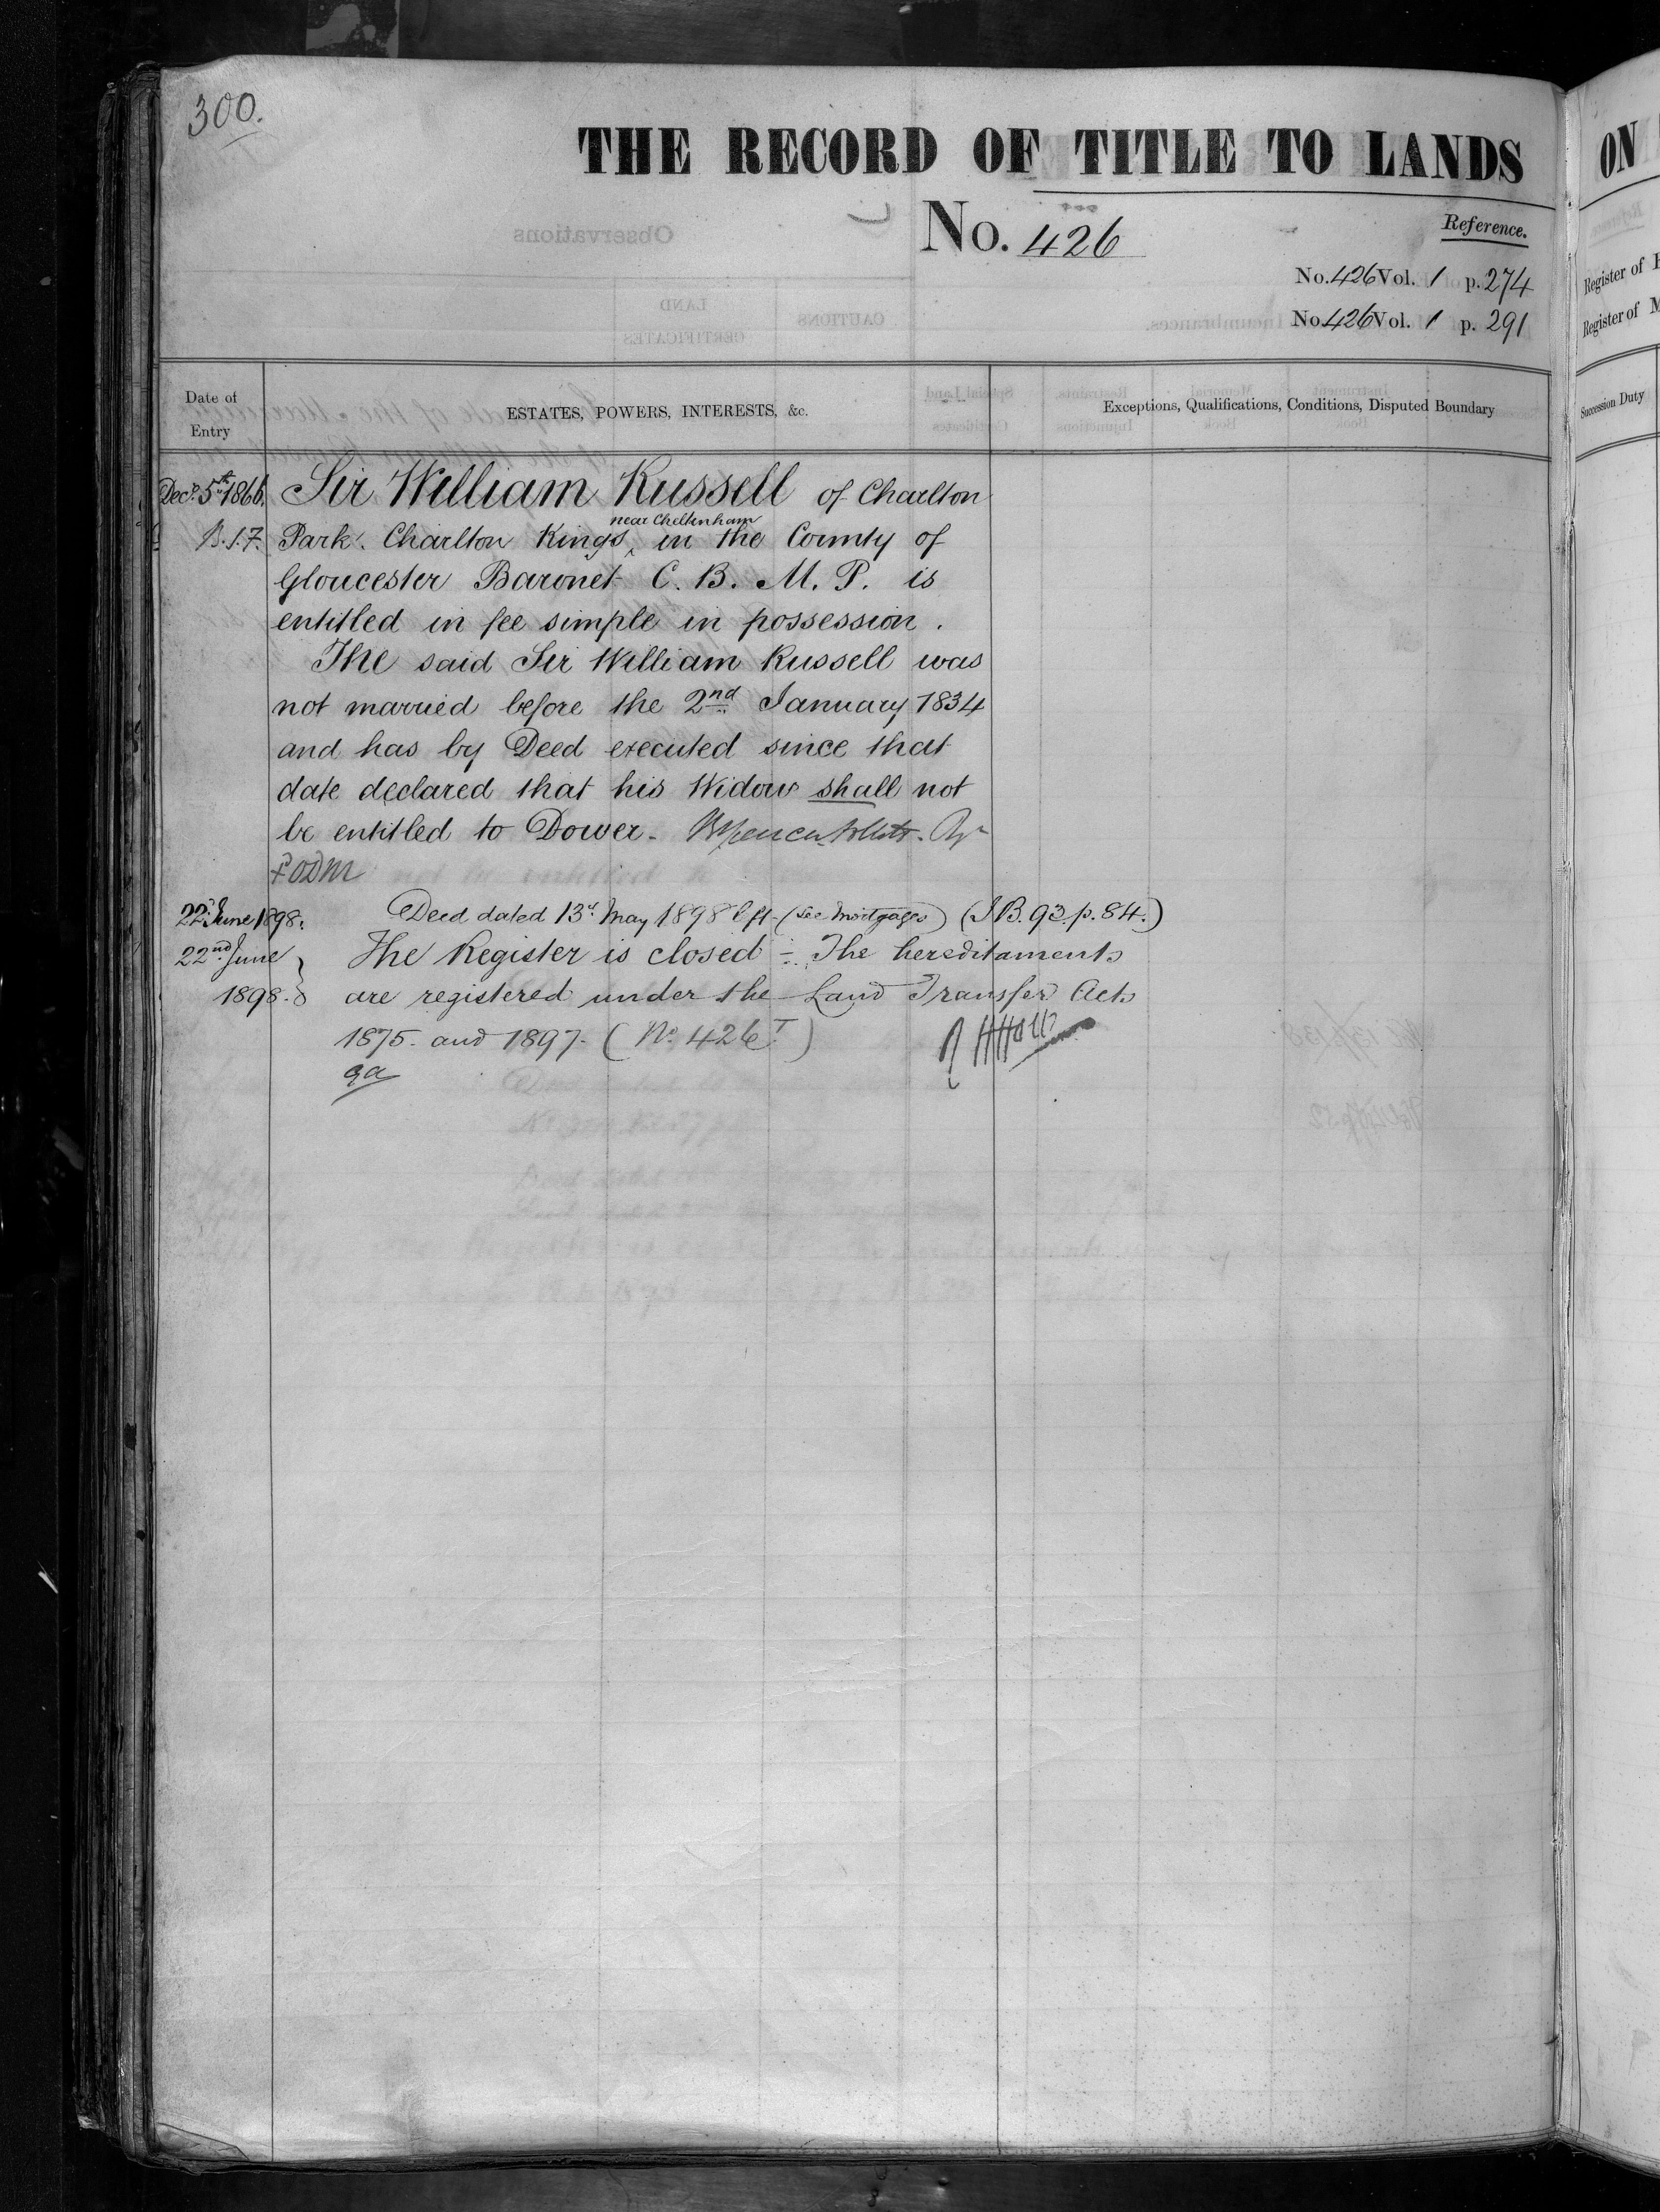 300.
THE RECORD OF TITLE TO LANDS
No. 426
Reference.
No. 426 Vol. 1 p. 274
No. 426 Vol. 1 p. 291
Date of Entry
ESTATES, POWERS, INTERESTS, &c.
Exceptions, Qualifications, Conditions, Disputed Boundary
Decr. 5th 1866. Sir William Russell of Charlton
Park. Charlton Kings near Cheltenham in the County of
Gloucester Baronet C. B. M. P. is
entitled in fee simple in possession.
The said Sir William Russell was
not married before the 2nd January 1834
and has by Deed executed since that
date declared that his Widow shall not
be entitled to Dower.
22nd June 1898. Deed dated 13th May 1898 (see Mortgages) (I B. 93. p. 84.)
22nd June 1898. The Register is closed - The hereditaments
are registered under the Land Transfer Acts
1875. and 1897. (No. 426 I)
ON
Register of
Register of M
Succession Duty